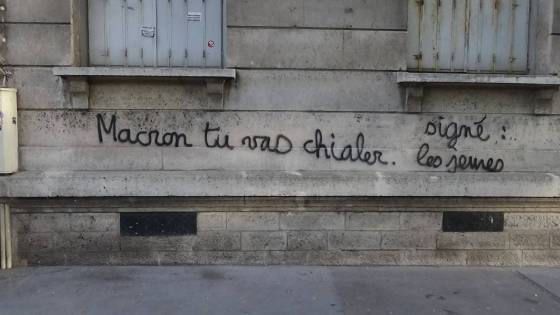 Macron tu vas chialer.
signé :
les jeunes